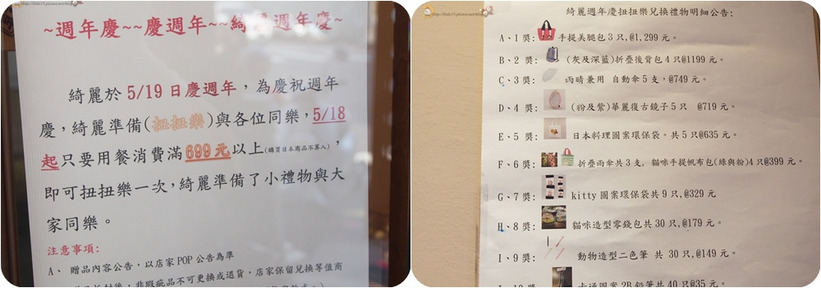 ~週年慶~~慶週年~~綺麗週年慶~
綺麗於 5/19 日慶週年，為慶祝週年
慶，綺麗準備(扭扭樂)與各位同樂，5/18
起只要用餐消費滿 699 元以上(購買日本商品不算入)，
即可扭扭樂一次，綺麗準備了小禮物與大
家同樂。
注意事項：
A、 贈品內容公告，以店家 POP 公告為準
非瑕疵品不可更換或退貨，店家保留兌換等值商
綺麗週年慶扭扭樂兌換禮物明細公告：
A、1 獎： 手提美腿包 3 只,@1,299 元。
B、2 獎： (灰及深藍)折疊後背包 4 只@1199 元。
C、3 獎： 雨晴兼用 自動傘 5 支，@749 元。
D、4 獎： (粉及紫)華麗復古鏡子 5 只 @719 元。
E、5 獎： 日本料理圖案環保袋。共 5 只@635 元。
F、6 獎： 折疊雨傘共 3 支，貓咪手提帆布包(綠與粉)4 只@399 元。
G、7 獎： kitty 圖案環保袋共 9 只,@329 元
H、8 獎： 貓咪造型零錢包共 30 只,@179 元。
I、9 獎： 動物造型二色筆 共 30 只,@149 元。
I、10 獎： 卡通圖案 2B 鉛筆共 40 只@35 元。